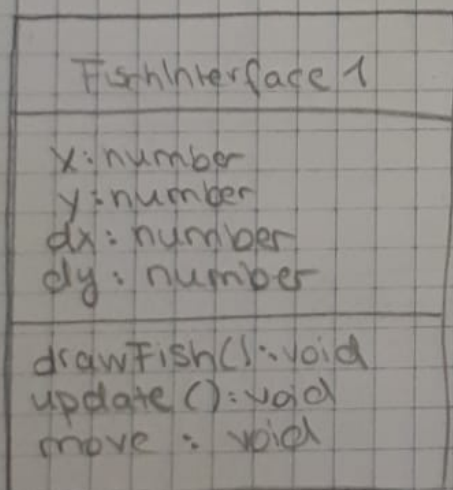 FischInterface 1
x: number
y: number
dx: number
dy: number
drawFish(): void
update(): void
move: void